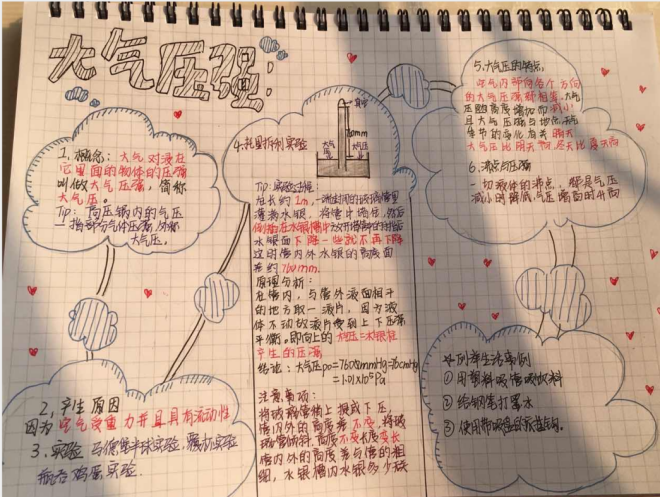 大气压强:
1. 概念: 大气对浸在
它里面的物体的压强
叫做大气压强, 简称
大气压。
Tip: 高压锅内的气压
一指部分气体压强, 不称
大气压。
2, 产生原因
因为空气受重力并且具有流动性
3. 实验 马德堡半球实验 覆杯实验
瓶吞鸡蛋实验.
4. 托里拆利实验
真空
760mm
大气压
大气压
Tip: 实验过程
在长约1m, 一端封闭的玻璃管里
灌满水银, 将管口堵住, 然后
倒插在水银槽中放开堵管口的手指后
水银面下降一些就不再下降
这时管内外水银的高度差
差约760mm.
原理分析:
在管内, 与管外液面相平
的地方取一液片, 因为液
体不动故液片受到上下压强
平衡。即向上的大气压=水银柱
产生的压强
结论: 大气压p0=760mmHg=76cmHg
=1.01×10⁵Pa
注意事项:
将玻璃管稍上提或下压,
管内外的高度差不变, 将玻
璃管倾斜, 高度不变长度变长
管内外的高度差与管的粗
细, 水银槽内水银多少无关
5. 大气压的特点,
空气内部向各个方向
的大气压强都相等. 大气
压随高度增加而减小,
且大气压强与地点, 天气
季节的变化有关 晴天
大气压比阴天高, 冬天比夏天高
6. 沸点与压强
一切液体的沸点, 都是气压
减小时降低, 气压增高时升高
列举生活事例
① 用塑料吸管吸饮料
② 给钢笔打墨水
③ 使用带吸盘的